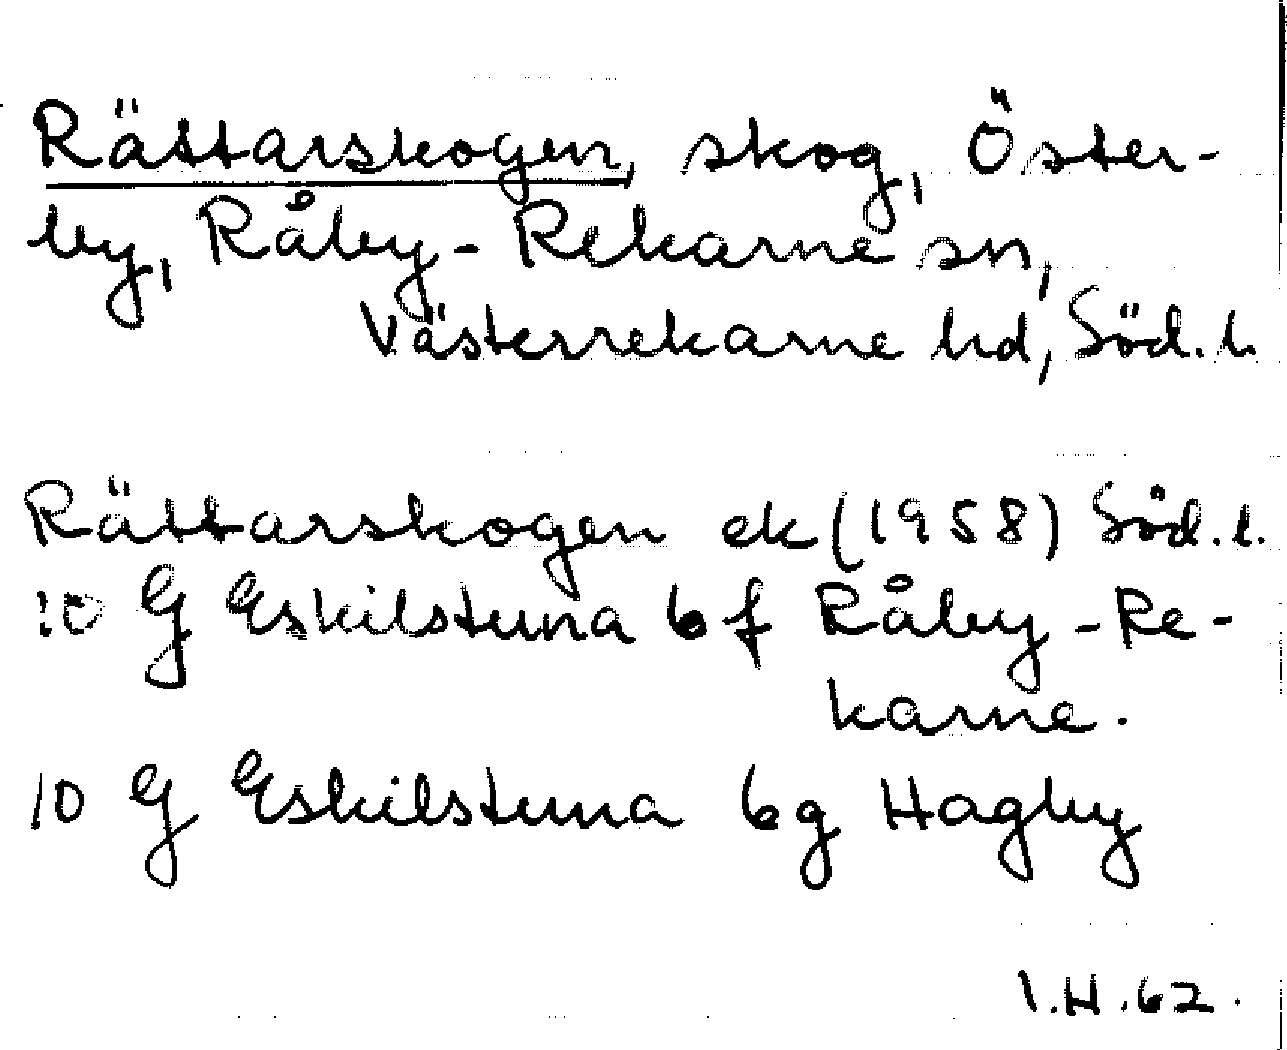 Rättarskogen, skog, Öster-
by, Råby-Rekarne sn,
Västerrekarne hd, Söd.l.
Rättarskogen ek (1958) Söd.l.
10 G Eskilstuna 6f Råby-Re-
karne.
10 G Eskilstuna 6g Hagby
I.H.62.